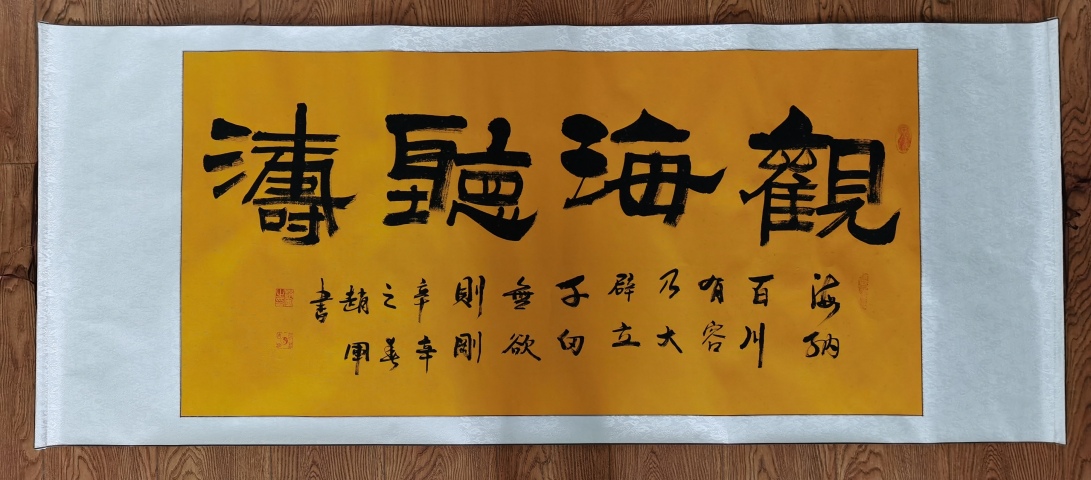 觀海聽濤
海納
百川
有容
乃大
辟立
千仞
無欲
則剛
辛
之春
趙軍
書